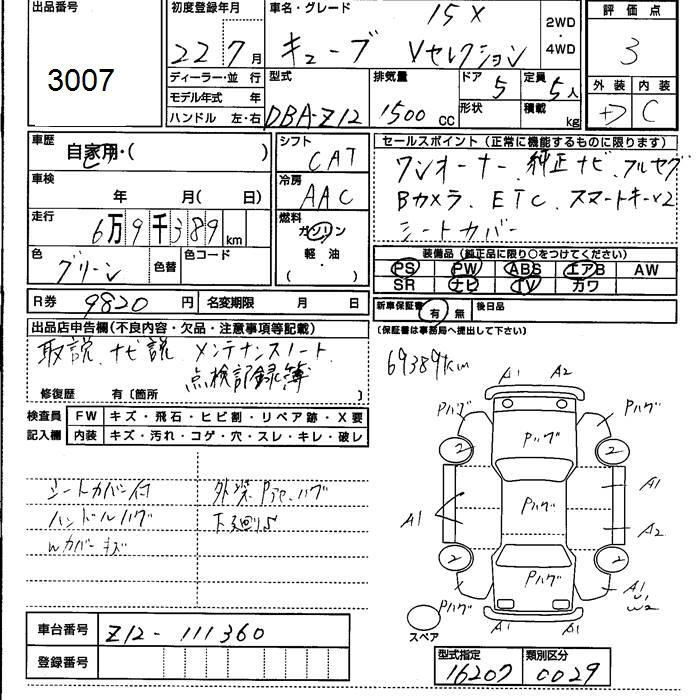 出品番号 初度登録年月 車名・グレード 15X 2WD・4WD 評価点
3007 22 7月 キューブ Vセレクション 3
ディーラー・並 行 型式 排気量 ドア 定員 外装 内装
モデル年式 年 DBA-Z12 1500cc 5 5人 C
ハンドル 左・右 形状 積載 kg
車歴 自家用・( ) シフト CAT セールスポイント(正常に機能するものに限ります)
車検 年 月( 日) 冷房 AAC ワンオーナー、純正ナビ、フルセグ
Bカメラ、ETC、スマートキーx2
シートカバー
走行 6万9千389km 燃料 ガソリン 軽・油 ( ・ )
色 グリーン 色替 色コード
装備品(純正品に限り○をつけてください)
PS PW ABS エアB AW
SR ナビ TV カワ
R券 9820円 名変期限 月 日 新車保証書 有 無 後日品
(保証書は事務局へ提出して下さい)
出品店申告欄(不良内容・欠品・注意事項等記載)
取説、ナビ説 メンテナンスノート、
点検記録簿
修復歴 有〔箇所 〕
69389km
検査員 FW キズ・飛石・ヒビ割・リペア跡・X要
記入欄 内装 キズ・汚れ・コゲ・穴・スレ・キレ・破レ
シートカバー付 外装
ハンドルハゲ 下廻りS
Wカバーキズ
A1 A2
Pハゲ Pハゲ Pハゲ
2 2
A1
A1 Pハゲ
A2
2 2
Pハゲ A1
W2
Pハゲ A1 A1
スペア
車台番号 Z12-111360
登録番号
型式指定 類別区分
16207 0029